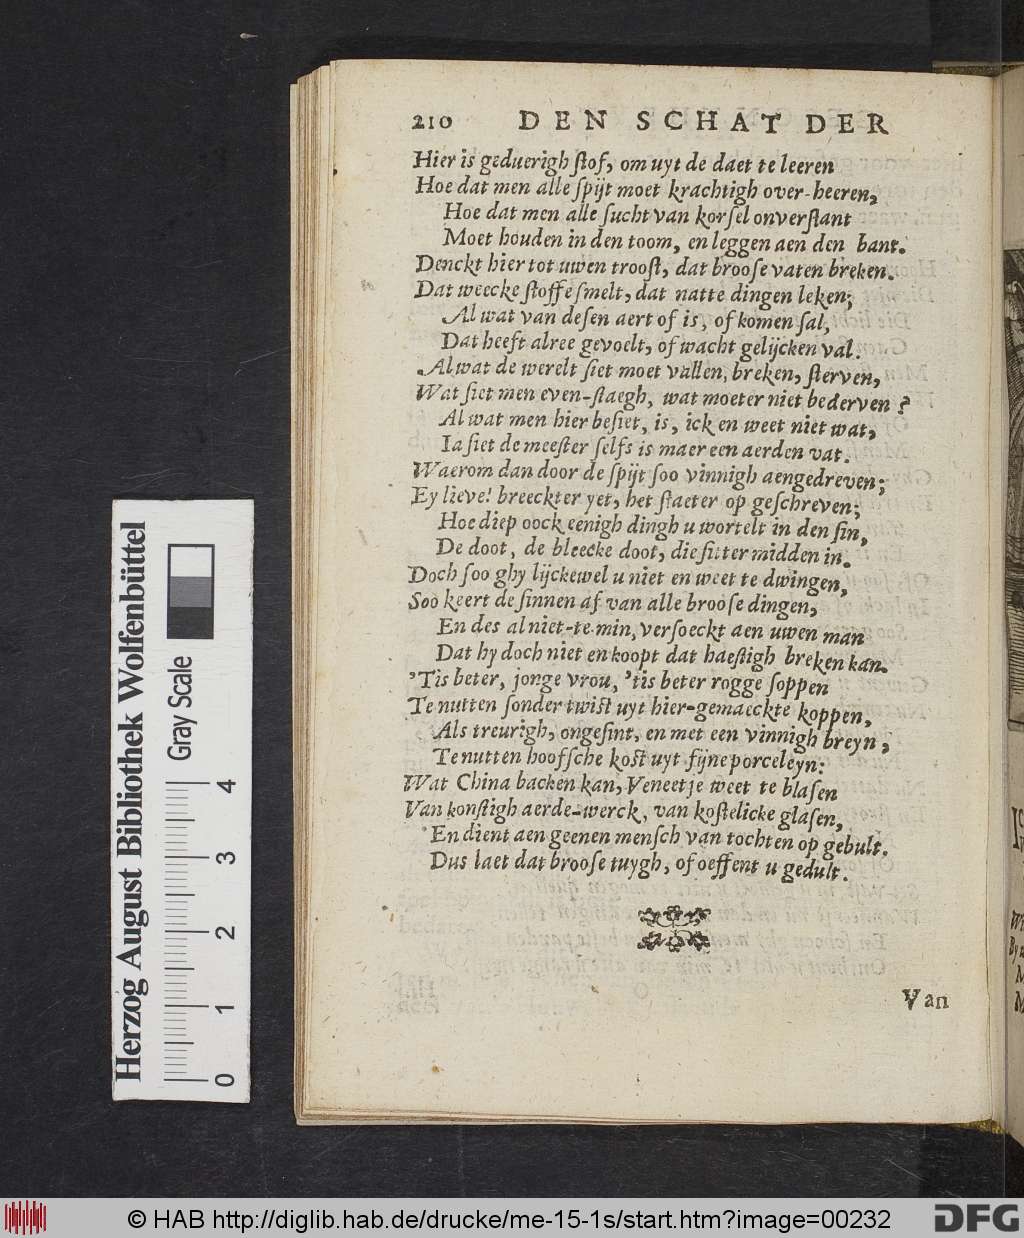 210 DEN SCHAT DER
Hier is geduerigh stof, om uyt de daet te leeren
Hoe dat men alle spijt moet krachtigh over-heeren,
Hoe dat men alle sucht van korsel onverstant
Moet houden in den toom, en leggen aen den bant.
Denckt hier tot uwen troost, dat broose vaten breken.
Dat weecke stoffe smelt, dat natte dingen leken;
Al wat van desen aert of is, of komen sal,
Dat heeft alree gevoelt, of wacht gelijcken val.
Al wat de werelt siet moet vallen, breken, sterven,
Wat siet men even-staegh, wat moeter niet bederven?
Al wat men hier besiet, is, ick en weet niet wat,
Ia siet de meester selfs is maer een aerden vat.
Waerom dan door de spijt soo vinnigh aengedreven;
Ey lieve! breeckter yet, het staeter op geschreven;
Hoe diep oock eenigh dingh u wortelt in den sin,
De doot, de bleecke doot, die sitter midden in.
Doch soo ghy lijckewel u niet en weet te dwingen,
Soo keert de sinnen af van alle broose dingen,
En des al niet-te-min, versoeckt aen uwen man
Dat hy doch niet en koopt dat haestigh breken kan.
'Tis beter, jonge vrou, 'tis beter rogge soppen
Te nutten sonder twist uyt hier-gemaeckte koppen,
Als treurigh, ongesint, en met een vinnigh breyn,
Te nutten hoofsche kost uyt fijne porceleyn:
Wat China backen kan, Veneetje weet te blasen
Van konstigh aerde-werck, van kostelicke glasen,
En dient aen geenen mensch van tochten op gebult.
Dus laet dat broose tuygh, of oeffent u gedult.
Van
Herzog August Bibliothek Wolfenbüttel
Gray Scale
0 1 2 3 4
© HAB http://diglib.hab.de/drucke/me-15-1s/start.htm?image=00232
DFG